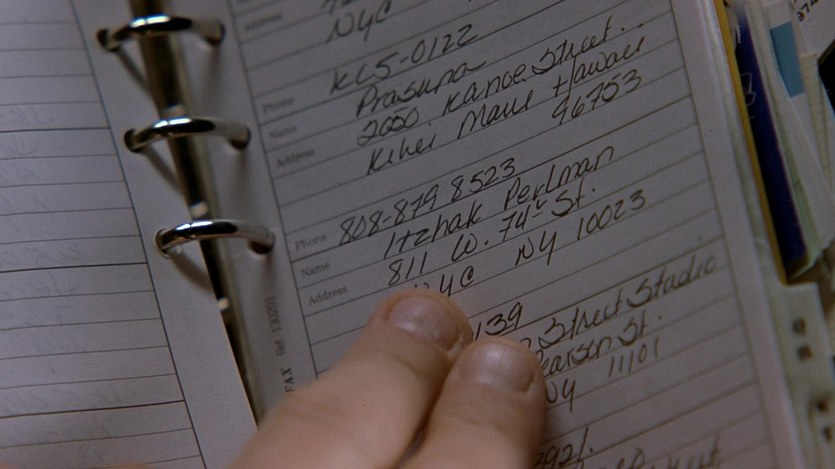 NYC
Address
Phone KL5-0122
Name Prasuna
Address 2050. Kanoe Street..
Kihei Maui Hawaii
96753
Phone 808-879 8523
Name Itzhak Perlman
Address 811 W. 74th St.
NYC NY 10023
139
Street Studio
earson St.
NY 11101
392
FAX Ref 130201